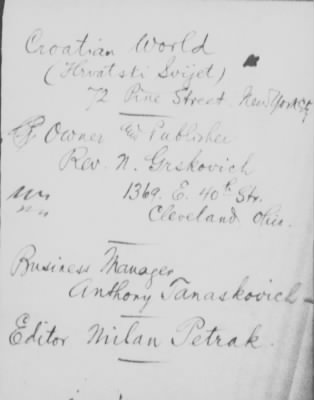 Croatian World
(Hrvatski Svijet)
72 Pine Street. New York City
Owner and Publisher
Rev. N. Grskovich
1369. E. 40th Str.
Cleveland Ohio.
Business Manager
Anthony Tanaskovich
Editor Milan Petrak.